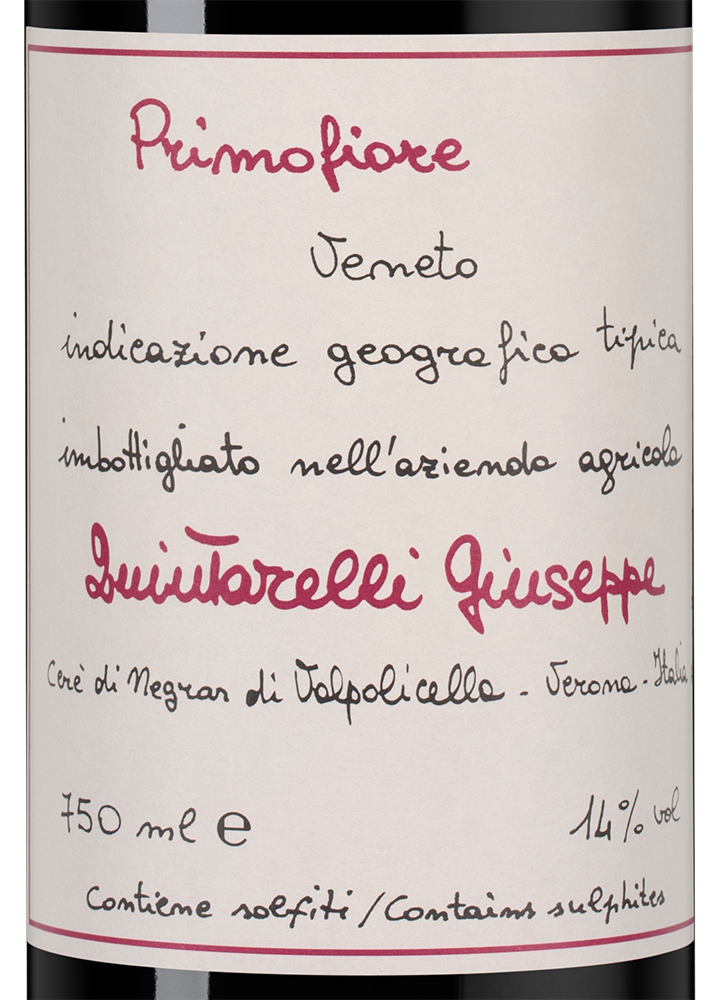 Primofiore
Veneto
indicazione geografica tipica
imbottigliato nell'azienda agricola
Quintarelli Giuseppe
Cerè di Negrar di Valpolicella - Verona - Italia
750 ml e
14% vol
Contiene solfiti / Contains sulphites